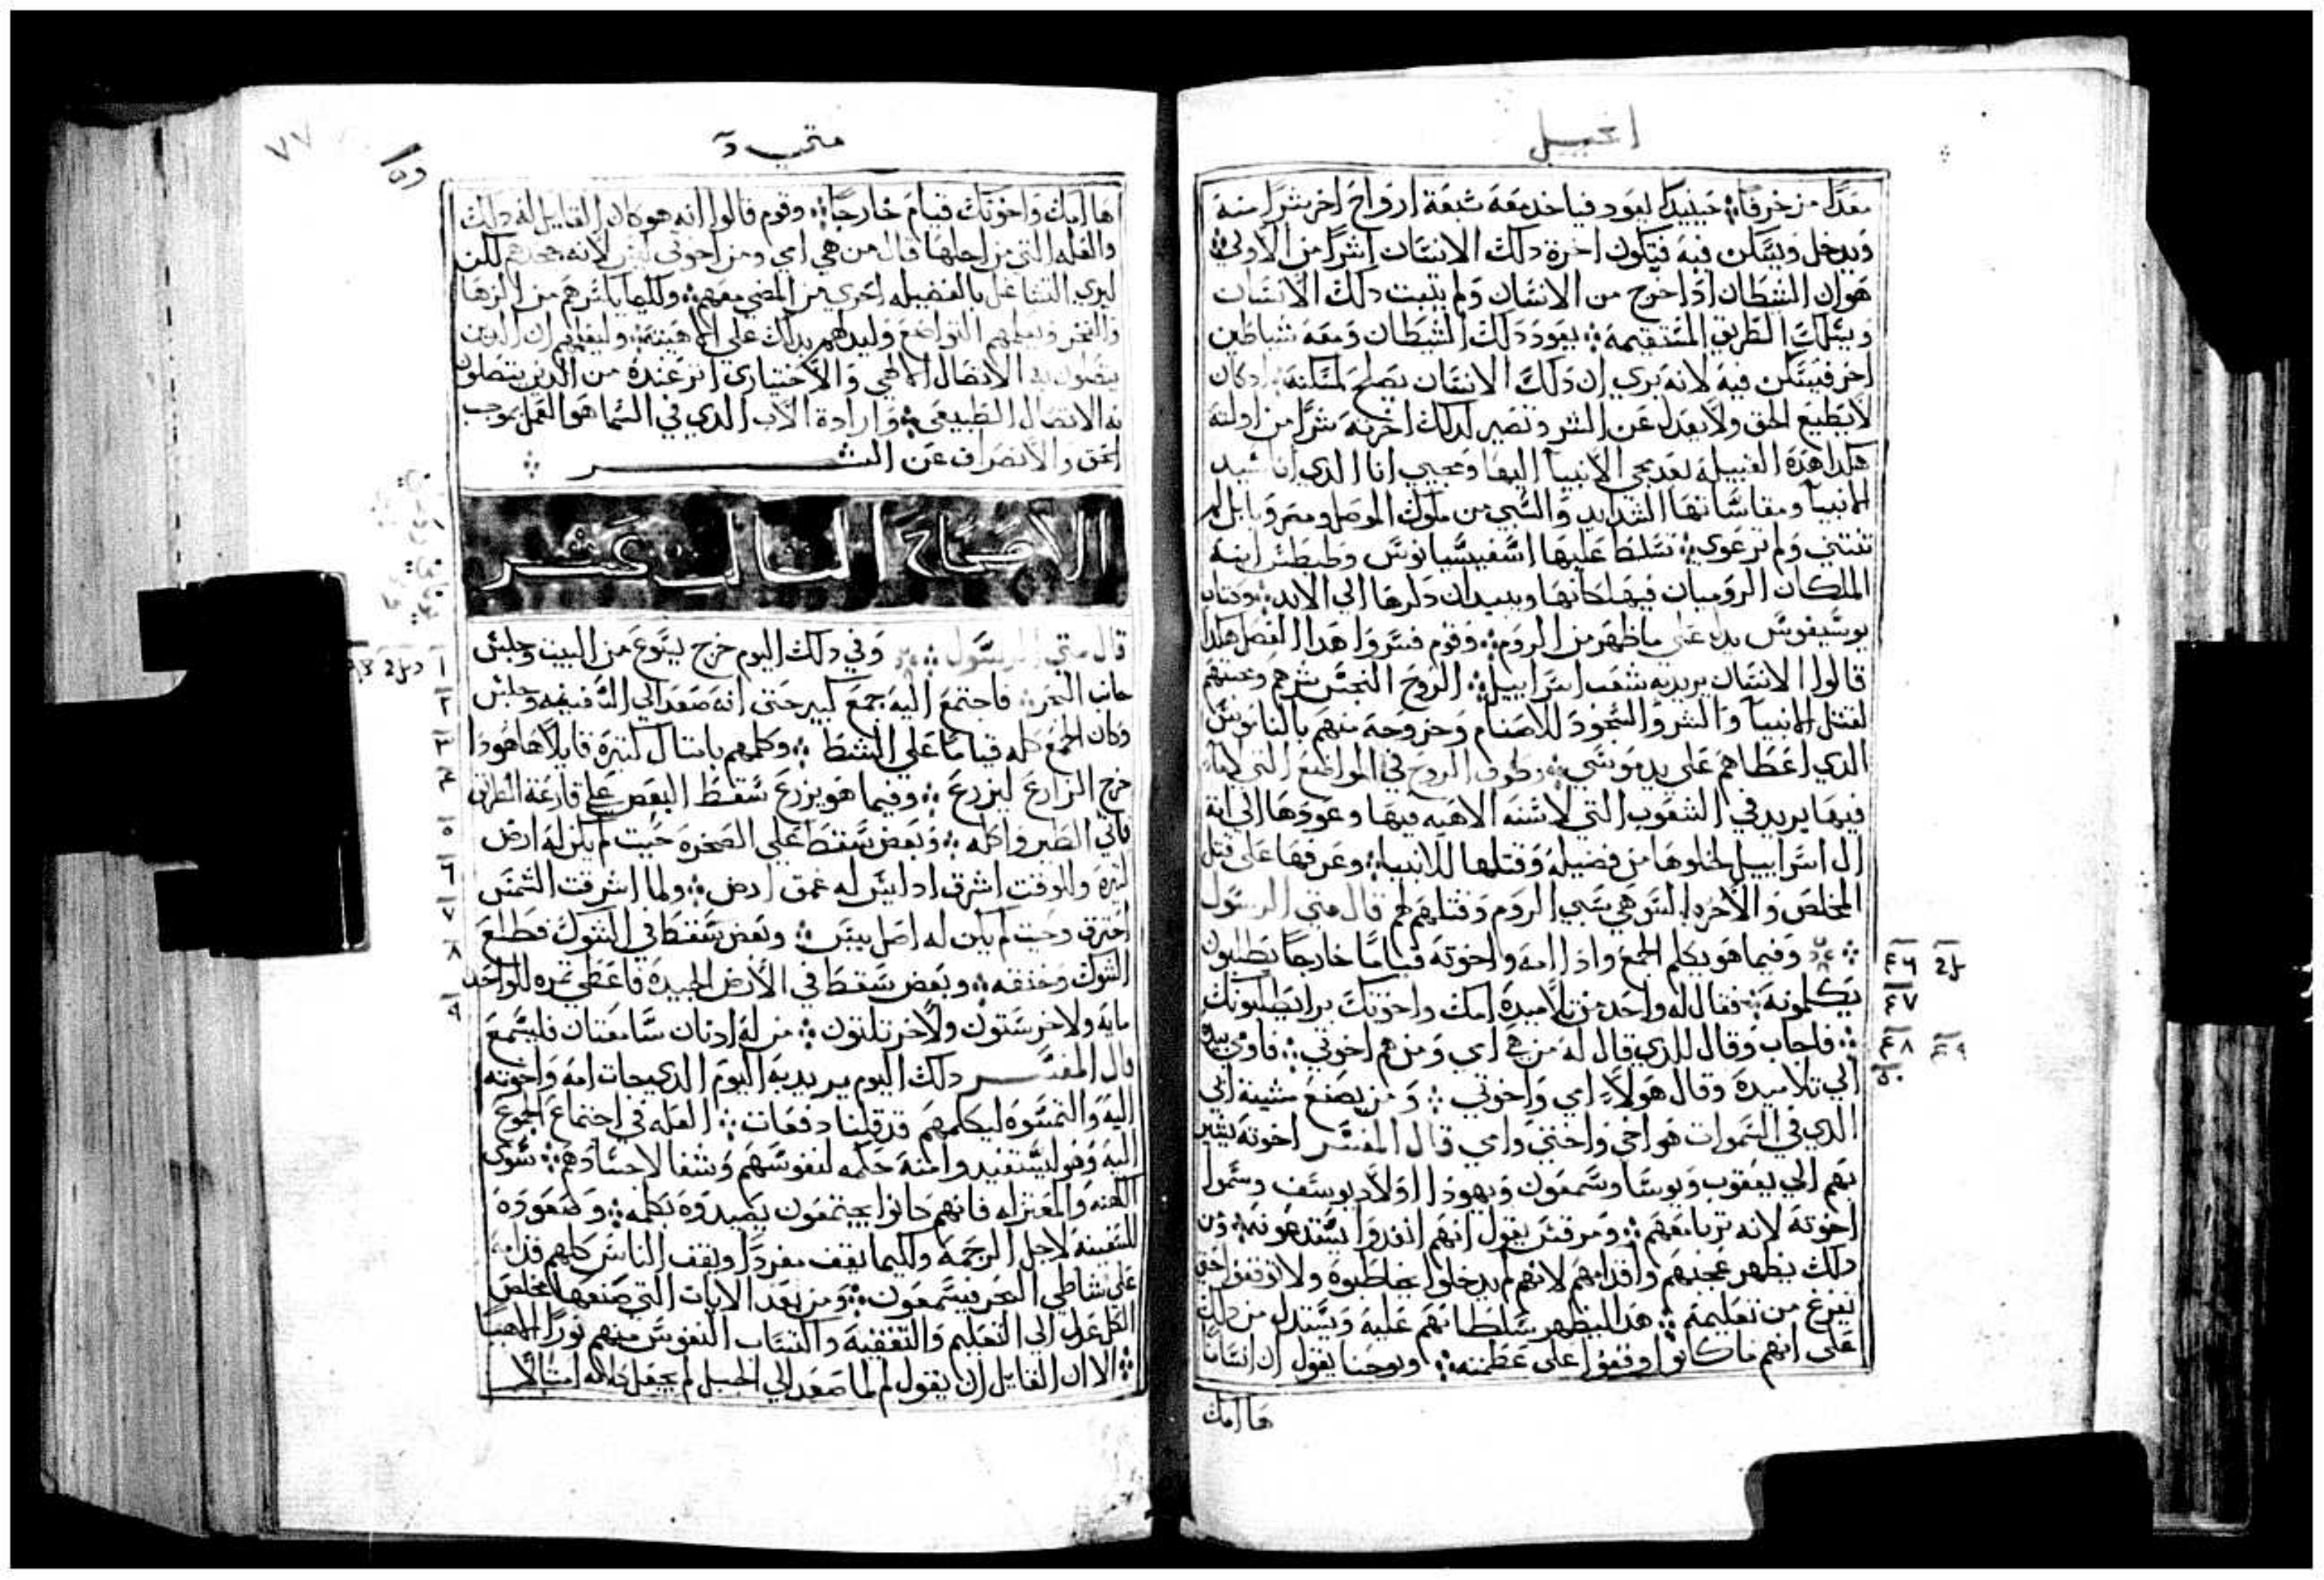 انجيل
معدا مزخرفا ⁘ حينيدا ليعود فياخد معه شبعة ارواح اخر شرا منه
ويدخل ويسكن فيه فتكون اخرة دلك الانسان اشرا من الاولي ⁘
هوان الشطان ادا خرج من الانسان ولم يتبت دلك الانسان
ويسلك الطريق المستقيمة ⁘ يعود دلك الشيطان ومعه شياطين
اخر فيسكن فيه لانه يري ان دلك الانسان يصلح لمسكنه ادكان
لا يطيع الحق ولا يعدل عن الشر وتصير لدلك اخرته شرا من اولته
هكدا هده القبيله بعد مجي الانبيا اليها ومجيي انا الدي انا سيد
الانبيا ومقاساتها الشدايد والسبي من ملوك الموصل ومصر وبابل لم
تنتني ولم ترعوي ⁘ تسلط عليها اسفيسيانوس وطيطس ابنه
الملكان الروميان فيهلكانها ويبيدان دكرها الي الابد ⁘ وكتاب
يوسيفوس يدل علي ما ظهر من الروم ⁘ وقوم فسروا هدا الفصل هكدا
قالوا الانسان يريد به شعب اسراييل ⁘ الروح النجس شرهم ومحبتهم
لقتل الانبيا والشر والسجود للاصنام وخروجه منهم بالناموس
الدي اعطاهم علي يد موسي ⁘ وطوف الروح في المواضع التي لاماء
فيها يريد في الشعوب التي لا سنه الاهيه فيها وعودها الي انه
ال اسراييل لخلوها من فضيله وقتلها للانبيا ⁘ وعرفها علي قتل
المخلص والاخره التي هي سبي الروم وقتلهم لهم قال متي الرسول
⁘ وفيما هو يكلم الجمع واذا امه واخوته قياما خارجا يطلبون
يكلمونه ⁘ فقال له واحد من تلاميده امك واخوتك برا يطلبونك
⁘ فاجاب وقال للدي قال له من هي امي ومن هم اخوتي ⁘ فاومي بيده
الي تلاميده وقال هولاء امي واخوتي ⁘ ومن يصنع مشيئة ابي
الدي في السموات هو اخي واختي وامي قال المفسر اخوته يشير
بهم الي يعقوب ويوسا وسمعون ويهودا اولاد يوسف وسموا
اخوته لانه تربا معهم ⁘ ومرقس يقول انهم انفدوا يستدعونه ⁘ ومن
دلك يظهر عجبهم واقدامهم لانهم لم يدخلوا يخاطبوه ولا توقفوا حتي
يفرغ من تعليمه ⁘ هدا ليظهر سلطانهم عليه ويستدل من دلك
علي انهم ما كانوا وقفوا علي عظمته ⁘ ويوحنا يقول ان انسانا
ها امك
٤٦
٤٧
٤٨
٤٩
٥٠
متي
٧٧
ها امك واخوتك قيام خارجا ⁘ وقوم قالوا انه هو كان القايل له دلك
والعله التي من اجلها قال من هي امي ومن اخوتي ليس لانه جحدهم لكن
ليري التشاغل بالفضيله احري من المضي معهم ⁘ وكليما يكسرهم من الزها
والفخر ويعلمهم التواضع وليدلهم بدلك علي الاهيته ⁘ وليعلمهم ان الدين
يتصلون به الاتصال الالهي والاختياري اثر عنده من الدين يتصلون
به الاتصال الطبيعي ⁘ وارادة الاب الدي في السما هو العمل بموجب
الحق والانصراف عن الشر ⁘
الاصحاح التالت عشر
قال متي الرسول ⁘ وفي دلك اليوم خرج يسوع من البيت وجلس
جانب البحر ⁘ فاجتمع اليه جمع كبير حتي انه صعد الي السفينه وجلس
وكان الجمع كله قياما علي الشط ⁘ وكلمهم بامتال كتيرة قايلا هاهودا
خرج الزارع ليزرع ⁘ وفيما هو يزرع سقط البعض علي قارعة الطريق
فاتي الطير واكله ⁘ وبعض سقط علي الصخره حيت لم يكن له ارض
كتيره وللوقت اشرق اد ليس له عمق ارض ⁘ ولما اشرقت الشمس
احترق وحيت لم يكن له اصل يبس ⁘ وبعض سقط في الشوك فطلع
الشوك وخنقه ⁘ وبعض سقط في الارض الجيدة فاعطي تمره للواحد
مايه ولاخر ستون ولاخر تلتون ⁘ من له ادنان سامعتان فليسمع
قال المفسر دلك اليوم يريد به اليوم الدي جات امه واخوته
اليه والتمسوه ليكلمهم قد قلينا دفعات ⁘ العله في اجتماع الجموع
اليه وهو ليستفيدوا منه حكمه لنفوسهم وشفا لاجسادهم ⁘ سوي
الكهنه والمعتزله فانهم كانوا يجتمعون يصيدوه بكلمه ⁘ وصعوده
للسفينه لاجل الزحمه وكليما يقف مفردا ويقف الناس كلهم قدامه
علي شاطي البحر فيسمعون ⁘ ومن بعد الايات التي صنعها المخلص
الكل عدل الي التعليم والتفقيه واكتساب النفوس منهم نورا الاهيا
⁘ الا ان القايل ان يقول لم لما صعد الي الجبل لم يجعل كلامه امتالا
١
٢
٣
٤
٥
٦
٧
٨
٩